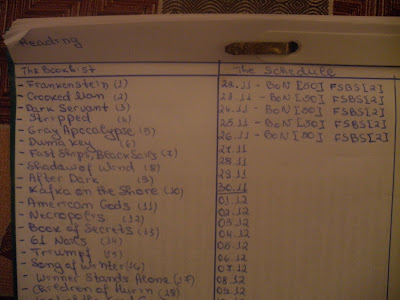 Reading
The Booklist
- Frankenstein (1)
- Crooked Man (2)
- Dark Servant (3)
- Stripped (4)
- Gray Apocalypse (5)
- Duma Key (6)
- Fast Ships, Black Sails (7)
- Shadow of Wind (8)
- After Dark (9)
- Kafka on the Shore (10)
- American Gods (11)
- Necropolis (12)
- Book of Secrets (13)
- 61 Nails (14)
- Triumpf (15)
- Song of Winter (16)
- Winner Stands Alone (17)
- Children of Hurin (18)
The Schedule
22.11 - BoN [50] FSBS [2]
23.11 - BoN [50] FSBS [2]
24.11 - BoN [50] FSBS [2]
25.11 - BoN [50] FSBS [2]
26.11 - BoN [50] FSBS [2]
27.11
28.11
29.11
30.11
01.12
02.12
03.12
04.12
05.12
06.12
07.12
08.12
09.12